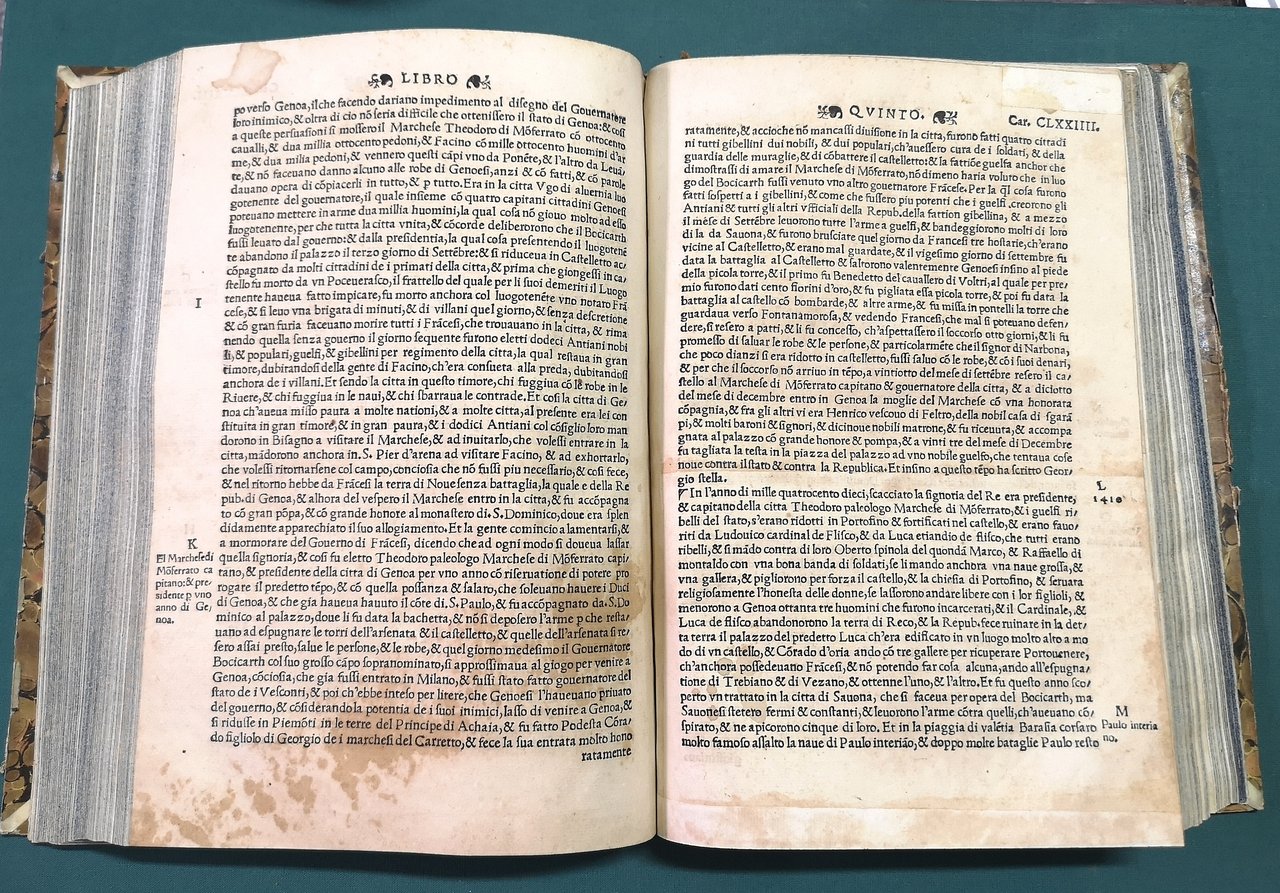 LIBRO
po verso Genoa, ilche facendo dariano impedimento al disegno del Governatore
loro inimico, & oltra di cio nõ seria difficile che ottenissero il stato di Genoa: & cosi
a queste persuasioni si mossero il Marchese Theodoro di Mõferrato cõ ottocento
caualli, & dua milia ottocento pedoni, & Facino cõ mille ottocento huomini d'ar
me, & dua milia pedoni, & vennero questi cãpi vno da Ponẽte, & l'altro da Leuã/
te, & nõ faceuano danno alcuno alle robe di Genoesi, anzi & cõ fatti, & cõ parole
dauano opera di cõpiacerli in tutto, & p tutto. Era in la citta Vgo di aluernia luo
gotenente del governatore, il quale insieme cõ quattro capitani cittadini Genoesi
poteuano mettere in arme dua millia huomini, la qual cosa nõ giouo molto ad esso
luogotenente, per che tutta la citta vnita, & cõcorde deliberorono che il Bocicarth
fussi leuato dal governo: & dalla presidentia, la qual cosa presentendo il luogotenẽ
te abandono il palazzo il terzo giorno di Settẽbre: & si riduceua in Castelletto ac/
cõpagnato da molti cittadini de i primati della citta, & prima che giongessi in ca/
stello fu morto da vn Poceuerasco, il frattello del quale per li suoi demeriti il Luogo
I
tenente haueua fatto impicare, fu morto anchora col luogotenẽte vno notaro Frã
cese, & si leuo vna brigata di minuti, & di villani quel giorno, & senza descretione
& cõ gran furia faceuano morire tutti i Frãcesi, che trouauano in la citta, & rima
nendo quella senza governo il giorno sequente furono eletti dodeci Antiani nobi
li, & populari, guelfi, & gibellini per regimento della citta, la qual restaua in gran
timore, dubitandosi della gente di Facino, ch'era consueta alla preda, dubitandosi
anchora de i villani. Et sendo la citta in questo timore, chi fuggiua cõ le robe in le
Riuere, & chi fuggiua in le naui, & chi sbarraua le contrade. Et cosi la citta di Ge/
noa ch'aueua misso paura a molte nationi, & a molte citta, al presente era lei con
stituita in gran timore, & in gran paura, & i dodici Antiani col cõsiglio loro man
dorono in Bisagno a visitare il Marchese, & ad inuitarlo, che volessi entrare in la
citta, mãdorono anchora in. S. Pier d'arena ad visitare Facino, & ad exhortarlo,
che volessi ritornarsene col campo, conciosia che nõ fussi piu necessario, & cosi fece,
& nel ritorno hebbe da Frãcesi la terra di Noue senza battaglia, la quale e della Re
pub. di Genoa, & alhora del vespero il Marchese entro in la citta, & fu accõpagna
to cõ gran põpa, & cõ grande honore al monastero di. S. Dominico, doue era splen
didamente apparechiato il suo allogiamento. Et la gente comincio a lamentarsi, &
a mormorare del Governo di Frãcesi, dicendo che ad ogni modo si doueua lassar
K
El Marchese di
Mõferrato ca
pitano: & pre/
sidente p vno
anno di Ge,
noa.
quella signoria, & cosi fu eletto Theodoro paleologo Marchese di Mõferrato capi/
tano, & presidente della citta di Genoa per vno anno cõ riseruatione di potere pro
rogare il predetto tẽpo, & cõ quella possanza & salaro, che soleuano hauere i Duci
di Genoa, & che gia haueua hauuto il cõte di. S. Paulo, & fu accõpagnato da. S. Do
minico al palazzo, doue li fu data la bachetta, & nõ si deposero l'arme p che resta/
uano ad espugnare le torri dell'arsenata & il castelletto, & quelle dell'arsenata si re/
sero assai presto, salue le persone, & le robe, & quel giorno medesimo il Governatore
Bocicarth col suo grosso cãpo sopranominato, si approssimaua al giogo per venire a
Genoa, cõciosia, che gia fussi entrato in Milano, & fussi stato fatto governatore del
stato de i Vesconti, & poi ch'ebbe inteso per litere, che Genoesi l'haueuano priuato
del governo, & cõsiderando la potentia de i suoi inimici, lasso di venire a Genoa, &
si ridusse in Piemõti in le terre del Principe di Achaia, & fu fatto Podesta Cõra/
do figliolo di Georgio de i marchesi del Carretto, & fece la sua entrata molto hono
ratamente
QVINTO.
Car. CLXXIIII.
ratamente, & accioche nõ mancassi diuisione in la citta, furono fatti quattro cittadi
ni tutti gibellini dui nobili, & dui populari, ch'auessero cura de i soldati, & della
guardia delle muraglie, & di cõbattere il castelletto: & la fattiõe guelfa anchor che
dimostrassi di amare il Marchese di Mõferrato, nõ dimeno haria voluto che in luo
go del Bocicarth fussi venuto vno altro governatore Frãcese. Per la q̃l cosa furono
fatti sospetti a i gibellini, & come che fussero piu potenti che i guelfi, creorono gli
Antiani & tutti gli altri vfficiali della Repub. della fattion gibellina, & a mezzo
il mẽse di Settẽbre leuorono tutte l'arme a guelfi, & bandeggiorono molti di loro
di la da Sauona, & furono brusciate quel giorno da Francesi tre hostarie, ch'erano
vicine al Castelletto, & erano mal guardate, & il vigesimo giorno di settembre fu
data la battaglia al Castelletto & saltorono valentemente Genoesi insino al piede
della picola torre, & il primo fu Benedetto del cauallero di Voltri, al quale per pre/
mio furono dati cento fiorini d'oro, & fu pigliata essa picola torre, & poi fu data la
battaglia al castello cõ bombarde, & altre arme, & fu missa in pontelli la torre che
guardaua verso Fontanamorosa, & vedendo Francesi, che mal si poteuano defen/
dere, si resero a patti, & li fu concesso, ch'aspettassero il soccorso otto giorni, & li fu
promesso di saluar le robe & le persone, & particolarmẽte che il signor di Narbona,
che poco dianzi si era ridotto in castelletto, fussi saluo cõ le robe, & cõ i suoi denari,
& per che il soccorso nõ arriuo in tẽpo, a vintiotto del mese di settẽbre resero il ca/
stello al Marchese di Mõferrato capitano & governatore della citta, & a diciotto
del mese di decembre entro in Genoa la moglie del Marchese cõ vna honorata
cõpagnia, & fra gli altri vi era Henrico vescouo di Feltro, della nobil casa di sgarã
pi, & molti baroni & signori, & dicinoue nobili matrone, & fu riceuuta, & accompa
gnata al palazzo cõ grande honore & pompa, & a vinti tre del mese di Decembre
fu tagliata la testa in la piazza del palazzo ad vno nobile guelfo, che tentaua cose
noue contra il stato & contra la Republica. Et insino a questo tẽpo ha scritto Geor/
gio stella.
L
1410
In l'anno di mille quattrocento dieci, scacciato la signoria del Re era presidente,
& capitano della citta Theodoro paleologo Marchese di Mõferrato, & i guelfi ri/
belli del stato, s'erano ridotti in Portofino & fortificati nel castello, & erano fauo/
riti da Ludouico cardinal de Flisco, & da Luca etiandio de flisco, che tutti erano
ribelli, & si mãdo contra di loro Oberto spinola del quondã Marco, & Raffaello di
montaldo con vna bona banda di soldati, se li mando anchora vna naue grossa, &
vna gallera, & pigliorono per forza il castello, & la chiesia di Portofino, & seruata
religiosamente l'honesta delle donne, se lassorono andare libere con i lor figlioli, &
menorono a Genoa ottanta tre huomini che furono incarcerati, & il Cardinale, &
Luca de flisco abandonorono la terra di Reco, & la Repub. fece ruinare in la det/
ta terra il palazzo del predetto Luca ch'era edificato in vn luogo molto alto a mo
do di vn castello, & Cõrado d'oria ando cõ tre gallere per ricuperare Portouenere,
ch'anchora possedeuano Frãcesi, & nõ potendo far cosa alcuna, ando all'espugna/
tione di Trebiano & di Vezano, & ottenne l'uno, & l'altro. Et fu questo anno sco/
perto vn trattato in la citta di Sauona, che si faceua per opera del Bocicarth, ma
Sauonesi stetero fermi & constanti, & leuorono l'arme cõtra quelli, ch'aueuano cõ/
M
Paulo interia
no.
spirato, & ne apicorono cinque di loro. Et in la piaggia di valẽtia Barasia corsaro
molto famoso assalto la naue di Paulo interião, & doppo molte bataglie Paulo resto